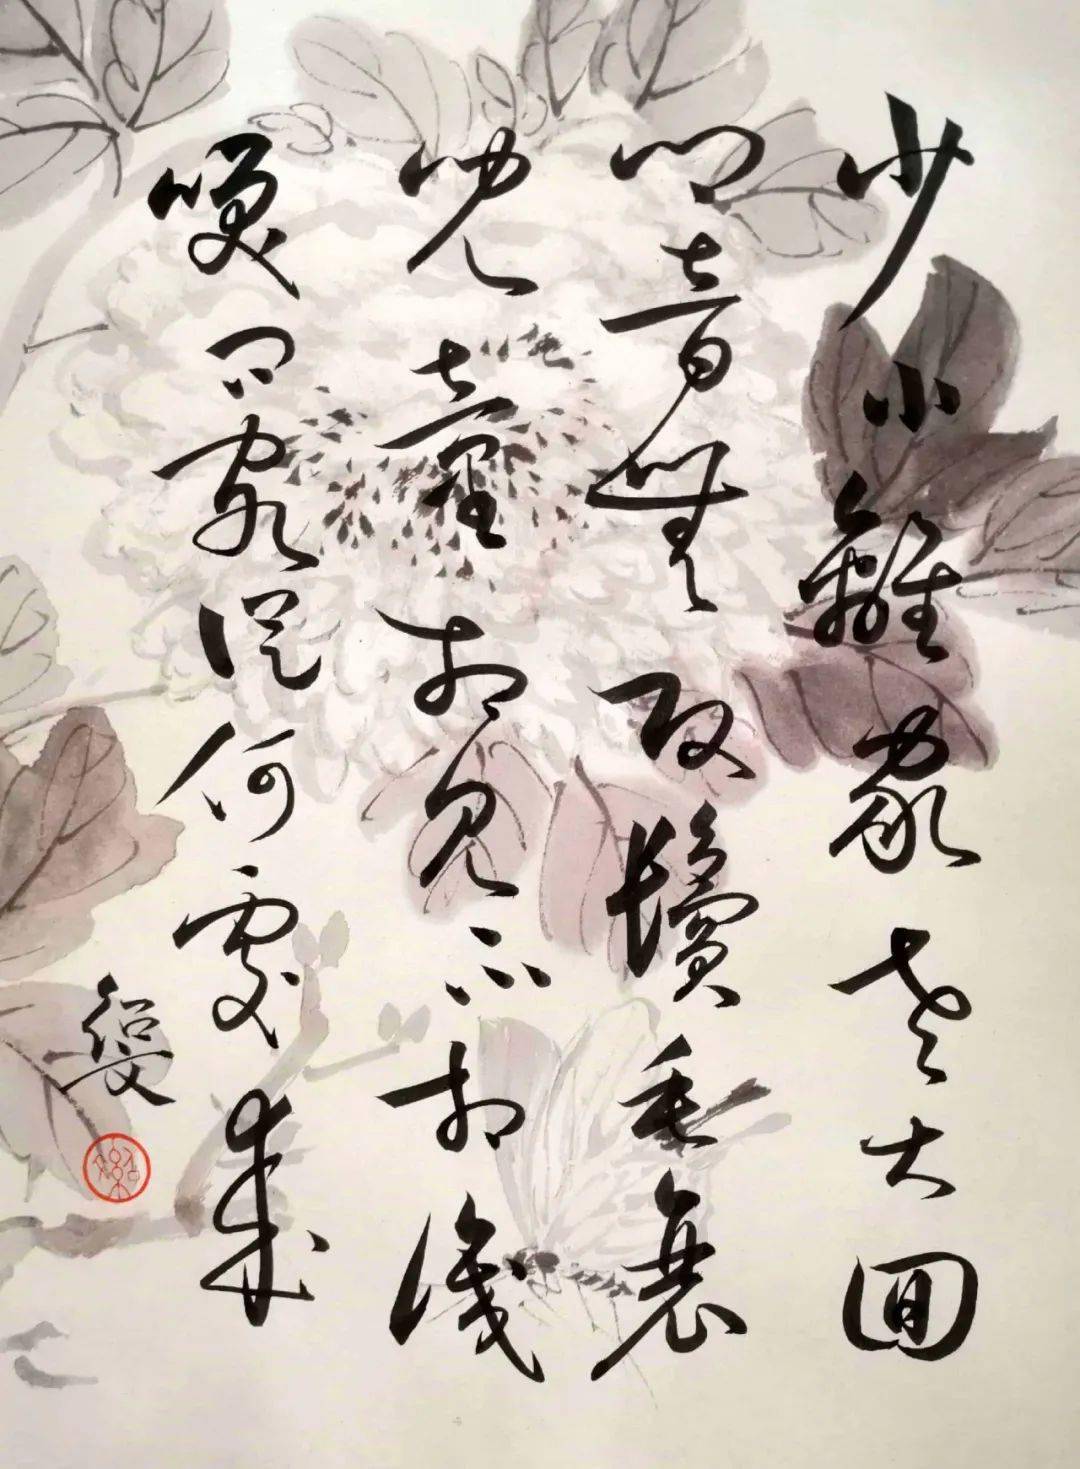 少小離家老大囬
鄉音無改鬢毛衰
兒童相見不相識
咲問客從何處來